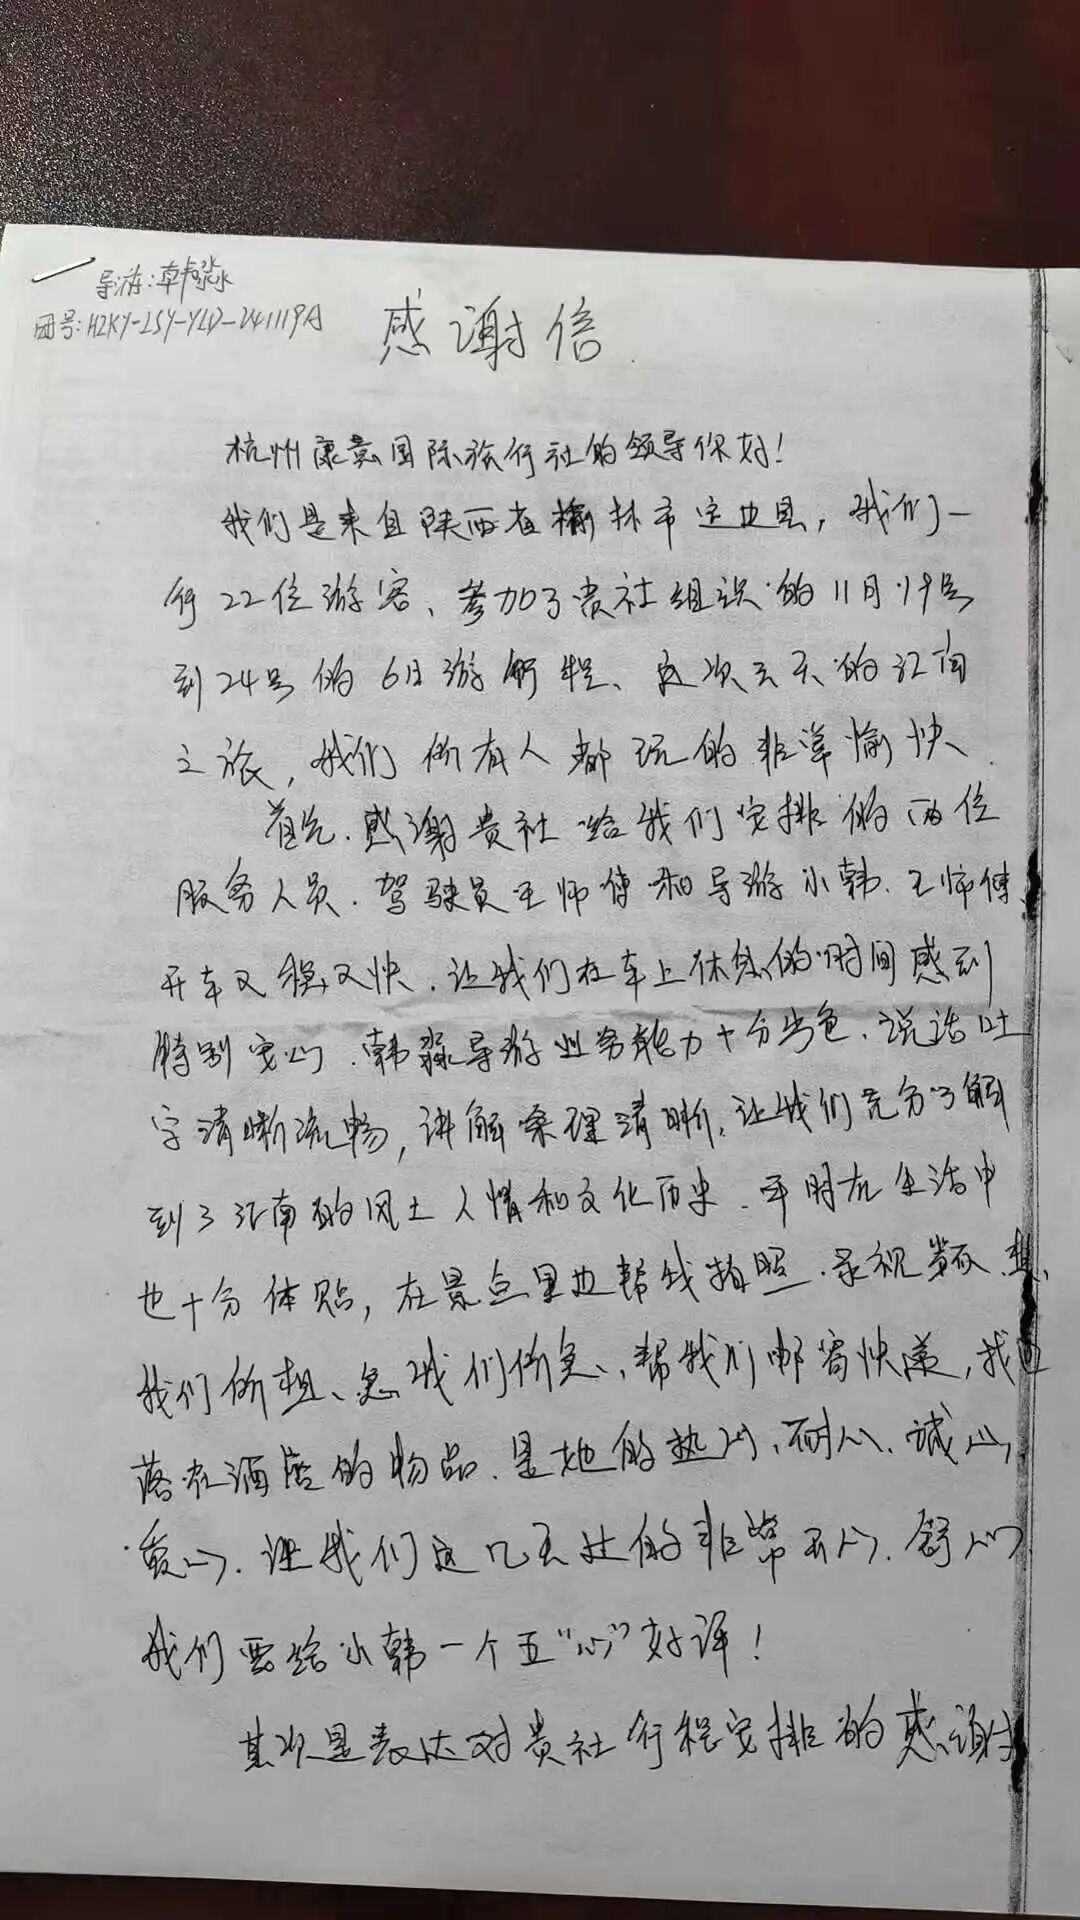 导游：韩淼
团号：HZKY-LSY-YLD-241119A
感谢信
杭州康意国际旅行社的领导你好！
我们是来自陕西省榆林市定边县，我们一
行22位游客、参加了贵社组织的11月19号
到24号的6日游行程、这次六天的江南
之旅，我们所有人都玩的非常愉快．
首先．感谢贵社给我们安排的两位
服务人员．驾驶员王师傅和导游小韩．王师傅
开车又稳又快．让我们在车上休息的时间感到
特别安心．韩淼导游业务能力十分出色．说话吐
字清晰流畅，讲解条理清晰，让我们充分了解
到了江南的风土人情和文化历史．平时在生活中
也十分体贴，在景点里边帮我拍照．录视频．想
我们所想、急我们所急、帮我们邮寄快递，找回
落在酒店的物品．是她的热心、耐心．诚心
爱心．让我们这几天过的非常开心．舒心
我们要给小韩一个五“心”好评！
其次是表达对贵社行程安排的感谢